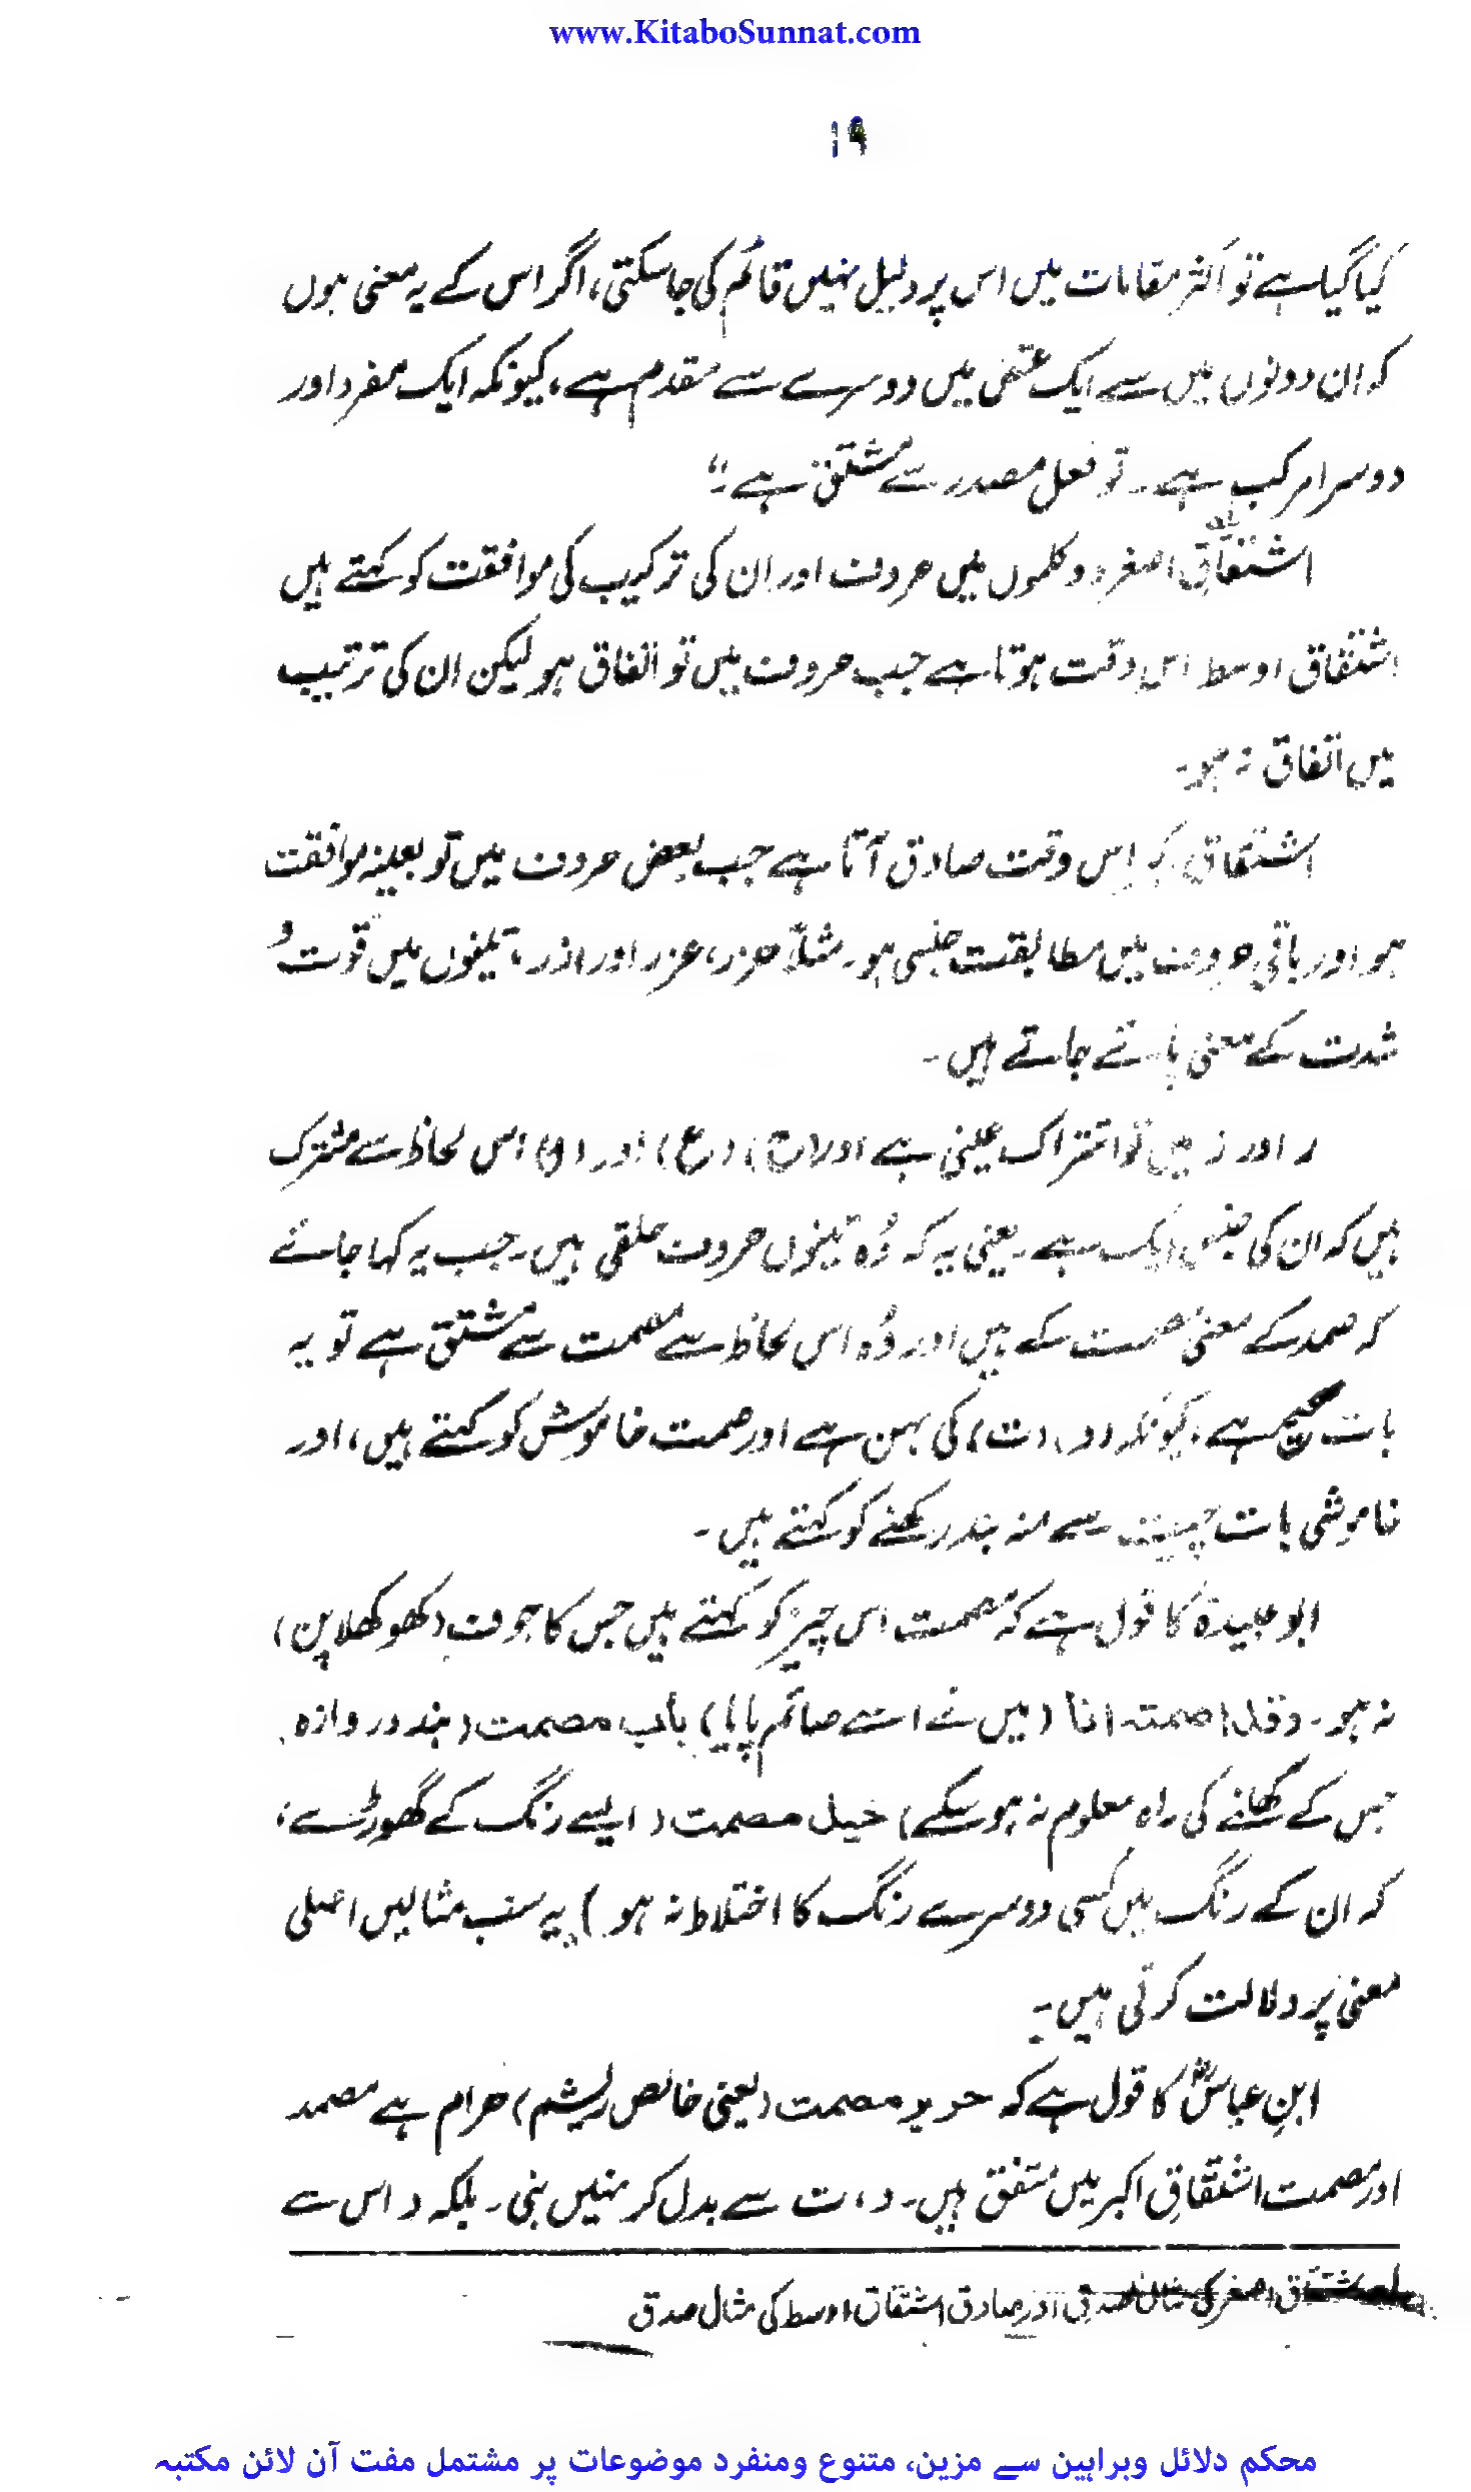 www.KitaboSunnat.com
۱۹
کیا گیا ہے تو اکثر مقامات میں اس پر دلیل نہیں قائم کی جاسکتی، اگر اس کے یہ معنی ہوں
کہ ان دونوں میں سے ایک عقلی میں دوسرے سے مقدم ہے، کیونکہ ایک مفرد اور
دوسرا مرکب ہے۔ تو فعل مصدر سے مشتق ہے۔"
اشتقاقِ اصغر دو کلموں میں حروف اور ان کی ترکیب کی موافقت کو کہتے ہیں
اشتقاق اوسط اس وقت ہوتا ہے جب حروف میں تو اتفاق ہو لیکن ان کی ترتیب
میں اتفاق نہ ہو۔
اشتقاق اس وقت صادق آتا ہے جب بعض حروف میں تو بعینہ موافقت
ہو اور باقی حروف میں مطابقت جنسی ہو۔ مثلاً حزر، عزر اور ازر، تینوں میں قوت و
شدت کے معنی پائے جاتے ہیں۔
ر اور ز میں تو اشتراک عینی ہے اور (ح) (ع) اور (ء) اس لحاظ سے مشترک
ہیں کہ ان کی جنس ایک ہے۔ یعنی یہ کہ وُہ تینوں حروف حلقی ہیں۔ جب یہ کہا جائے
کہ صمد کے معنی مصمت کے ہیں اور وُہ اس لحاظ سے مصمت سے مشتق ہے تو یہ
بات صحیح ہے، کیونکہ (د)، (ت) کی بہن ہے اور صمت خاموش کو کہتے ہیں، اور
خاموشی بات چیت سے منہ بند رکھنے کو کہتے ہیں۔
ابو عبیدہ کا قول ہے کہ مصمت اس چیز کو کہتے ہیں جس کا جوف (کھوکھلا پن)
نہ ہو۔ وقد اصمتہ انا (میں نے اسے صائم پایا) باب مصمت (بند دروازہ
جس کے کھلنے کی راہ معلوم نہ ہو سکے) خیل مصمت (ایسے رنگ کے گھوڑے،
کہ ان کے رنگ میں کسی دوسرے رنگ کا اختلاط نہ ہو) یہ سب مثالیں اصلی
معنی پر دلالت کرتی ہیں۔
ابنِ عباسؓ کا قول ہے کہ حریر مصمت (یعنی خالص ریشم) حرام ہے مصمد
اور مصمت اشتقاقِ اکبر میں متفق ہیں۔ د، ت سے بدل کر نہیں بنی۔ بلکہ د اس سے
اشتقاق اصغر کی مثال صدق اور صادق اشتقاق اوسط کی مثال صدق
محکم دلائل وبراہین سے مزین، متنوع ومنفرد موضوعات پر مشتمل مفت آن لائن مکتبہ